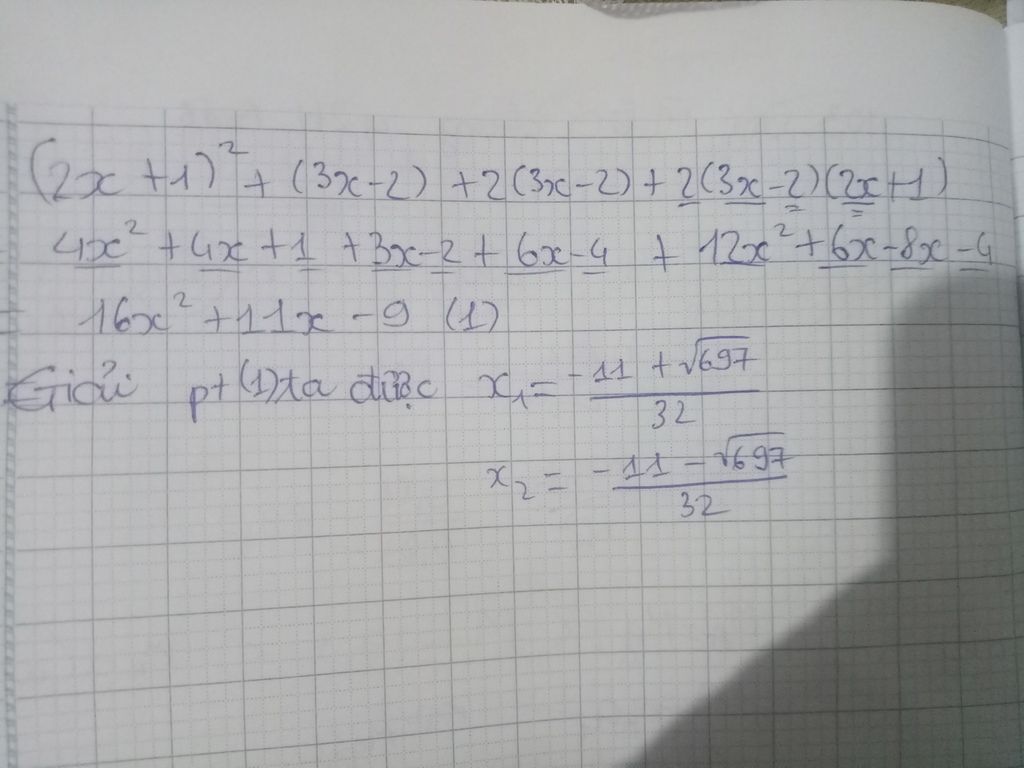 (2x + 1)² + (3x - 2) + 2(3x - 2) + 2(3x - 2)(2x + 1)
4x² + 4x + 1 + 3x - 2 + 6x - 4 + 12x² + 6x - 8x - 4
16x² + 11x - 9 (1)
Giải pt (1) ta được x₁ = (-11 + √697)/32
x₂ = (-11 - √697)/32